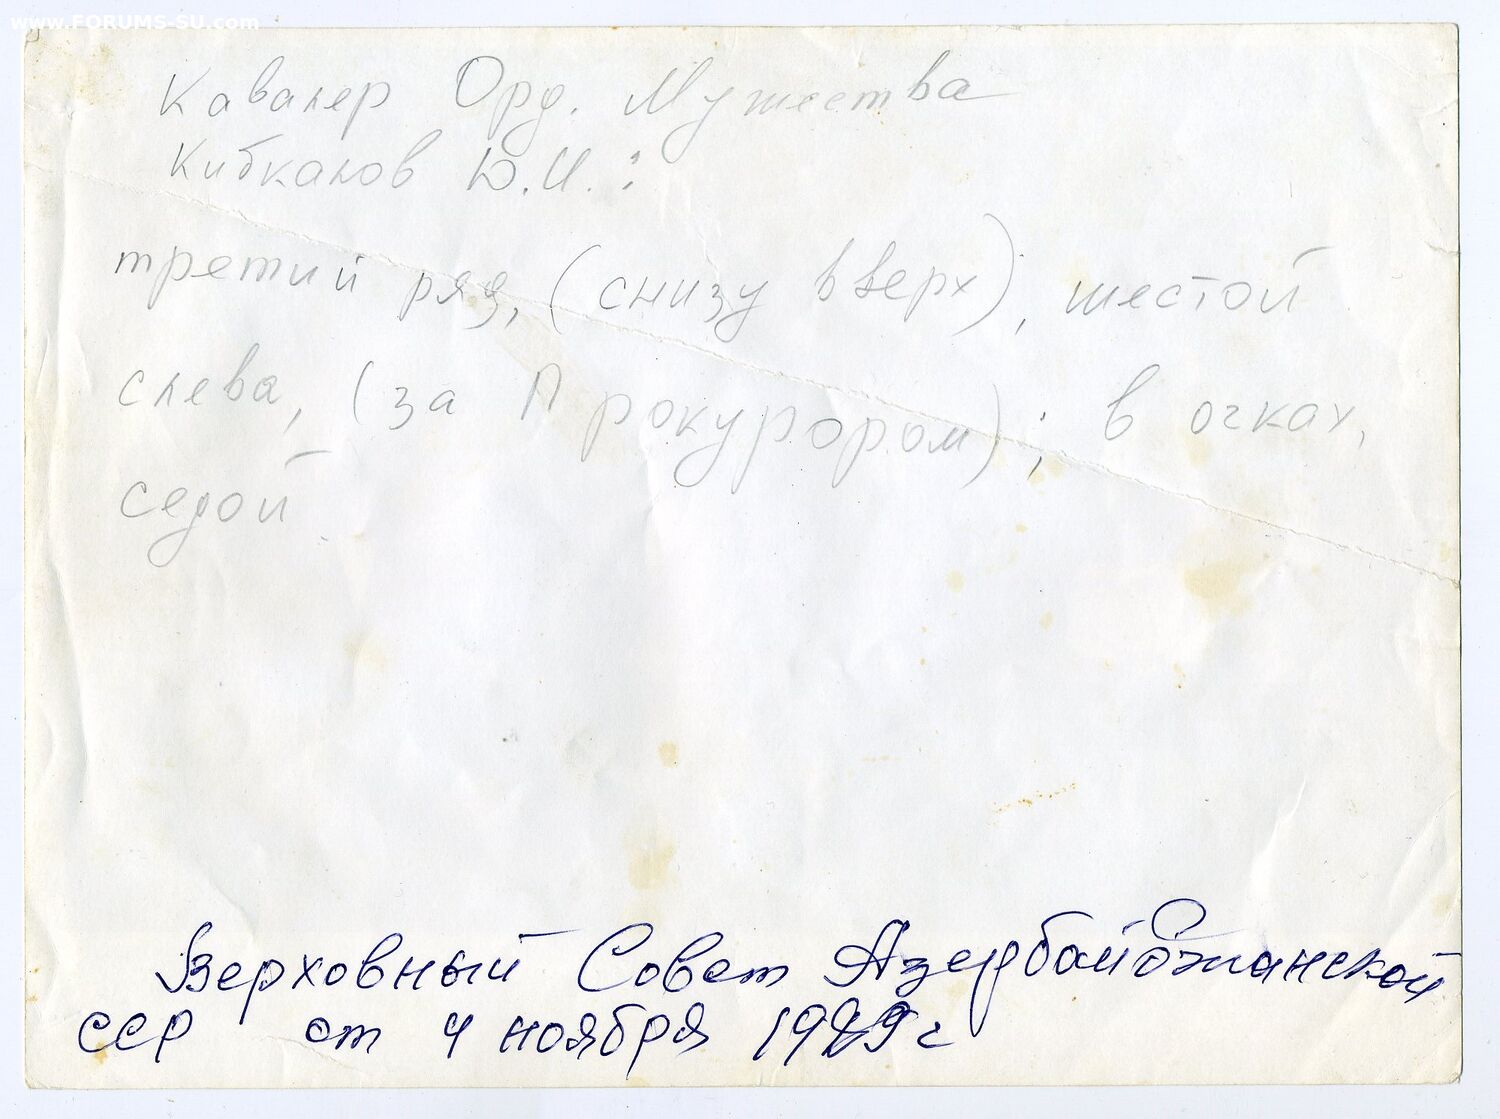 www.FORUMS-SU.com
Кавалер Орд. Мужества
Кибкалов Ю.И.:
третий ряд, (снизу вверх), шестой
слева, (за Прокурором); в очках,
седой
Верховный Совет Азербайджанской
ССР от 4 ноября 19 г